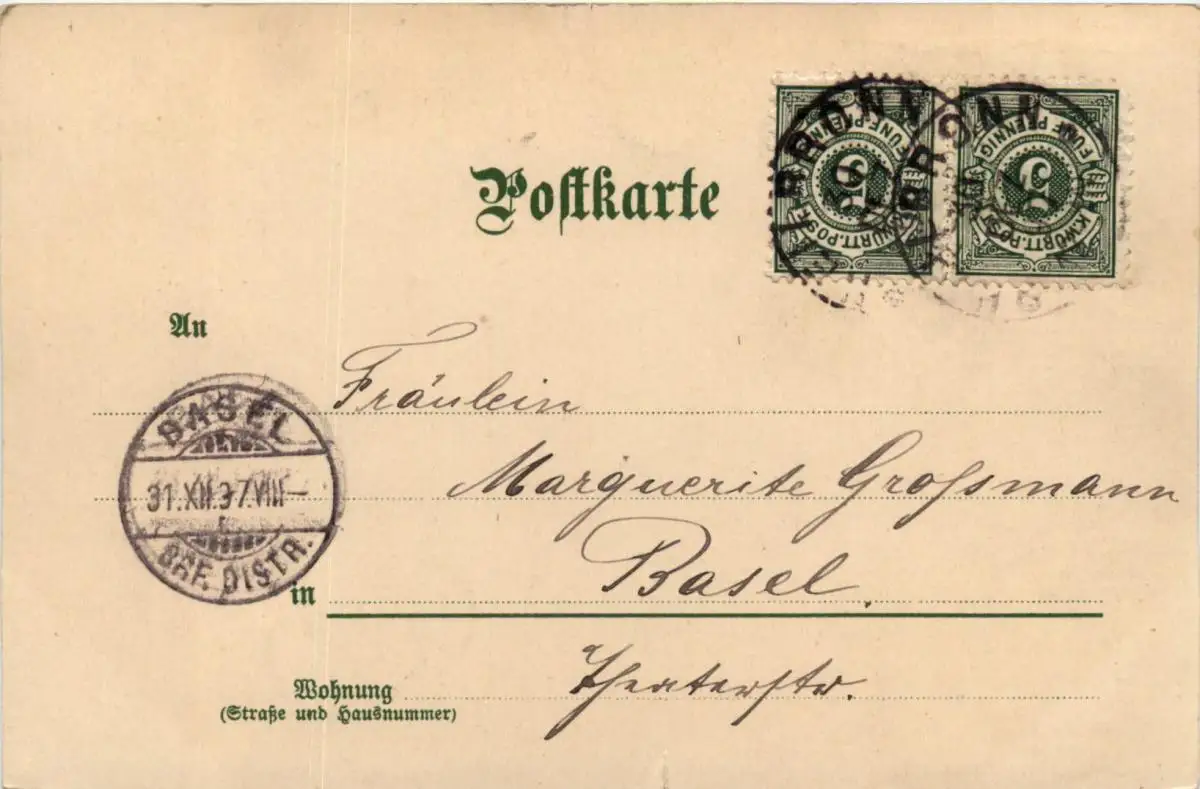 Postkarte
FÜNF PFENNIG
5
K.WÜRTT.POST
FÜNF PFENNIG
5
K.WÜRTT.POST
BRONN
BRONN
An
Fräulein
Marguerite Grossmann
in Basel.
BASEL
31.XII.97.VIII—
BRF. DISTR.
Wohnung Theaterstr.
(Straße und Hausnummer)